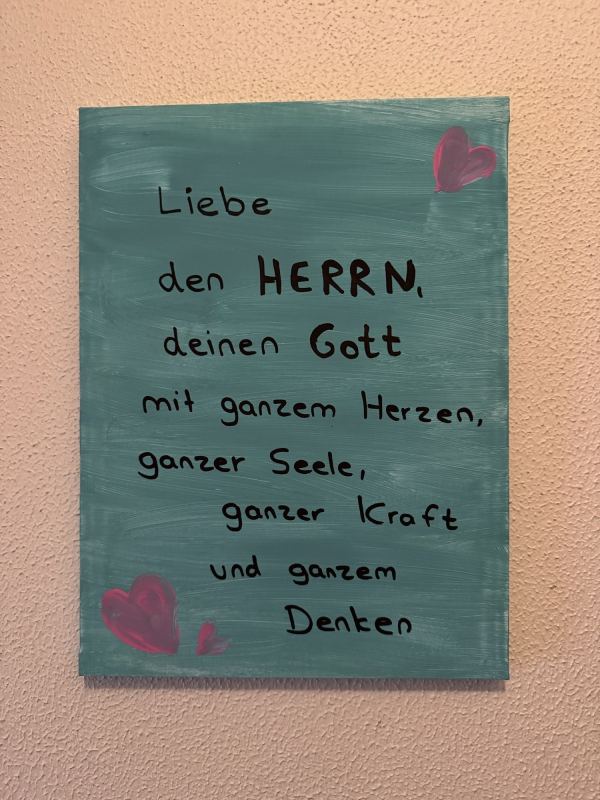 Liebe
den HERRN,
deinen Gott
mit ganzem Herzen,
ganzer Seele,
ganzer Kraft
und ganzem
Denken